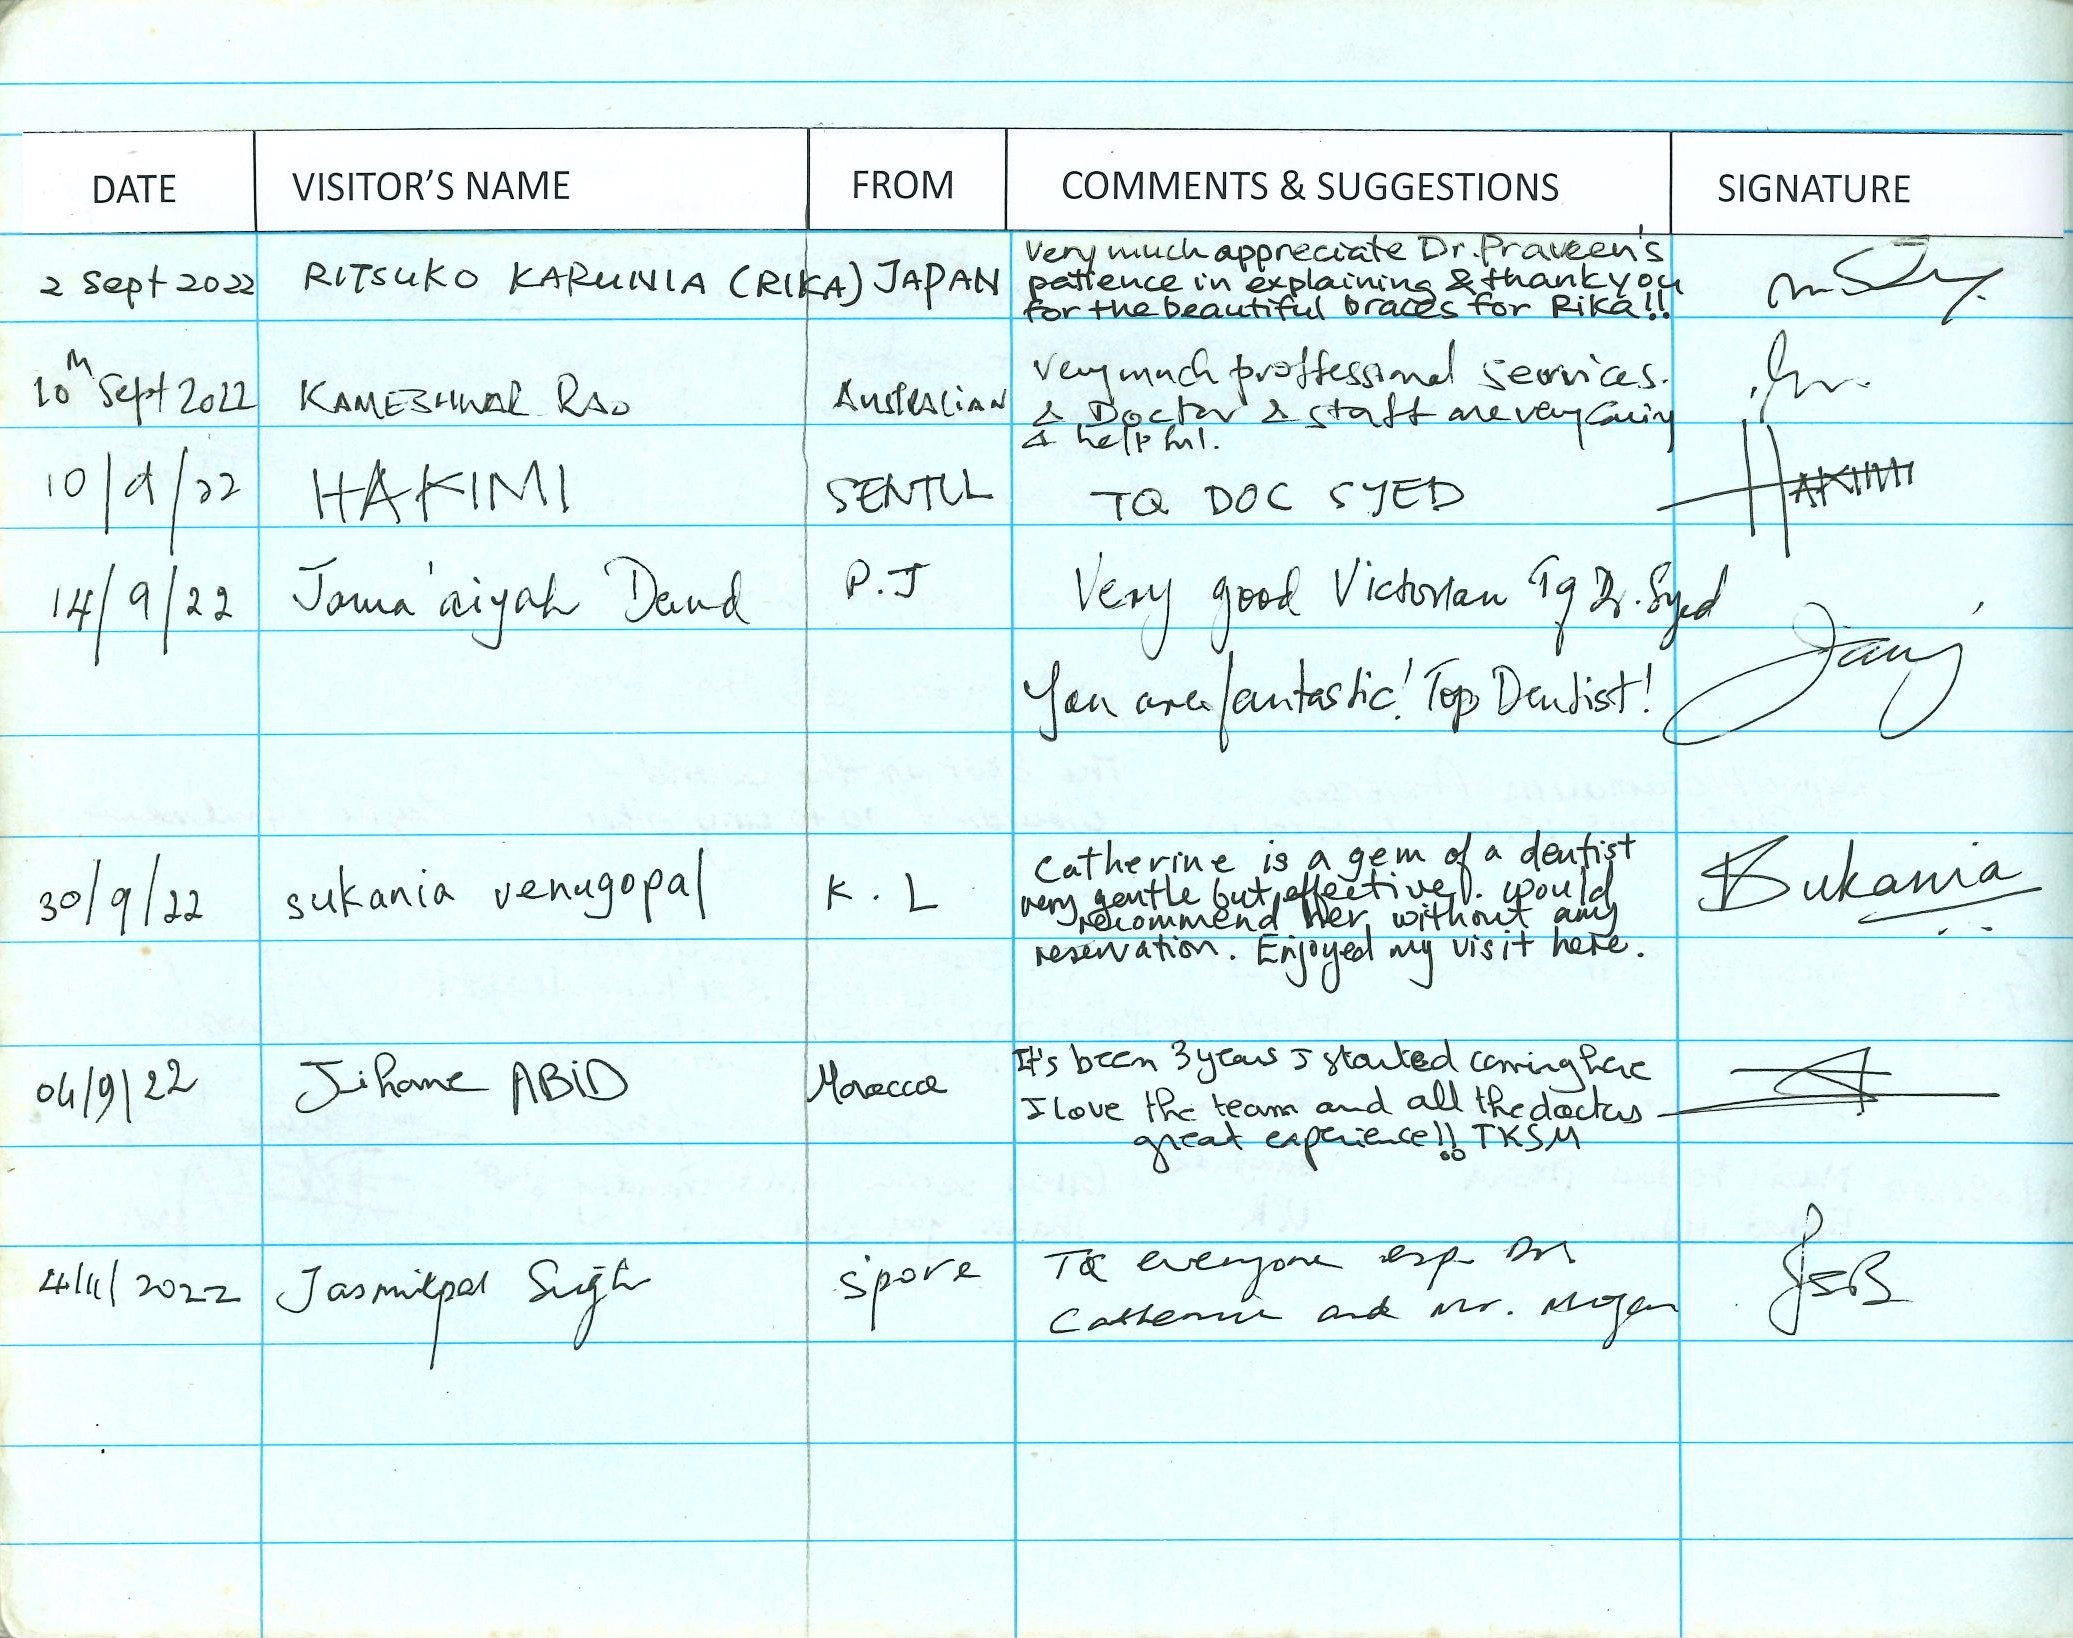 DATE VISITOR'S NAME FROM COMMENTS & SUGGESTIONS SIGNATURE
2 Sept 2022 RITSUKO KARUNIA (RIKA) JAPAN
very much appreciate Dr. Praveen's
patience in explaining & thank you
for the beautiful braces for Rika!!
10th Sept 2022 KAMESHWAR RAO AUSTRALIAN
very much proffessional services.
& Doctor & staff are very caring
& helpful.
10/9/22 HAKIMI SENTUL TQ DOC SYED HAKIMI
14/9/22 Jama'aiyah Daud P.J Very good Victorian Tq Dr. Syed
You are fantastic! Top Dentist!
30/9/22 sukania venugopal K.L Sukania
Catherine is a gem of a dentist
very gentle but effective. would
recommend her without any
reservation. Enjoyed my visit here.
04/9/22 Jihane ABiD Morocco
It's been 3 years I started coming here
I love the team and all the doctors
great experience!! TKSM
4/11/2022 Singh S'pore
TQ everyone esp. Dr
Catherine and Mr.